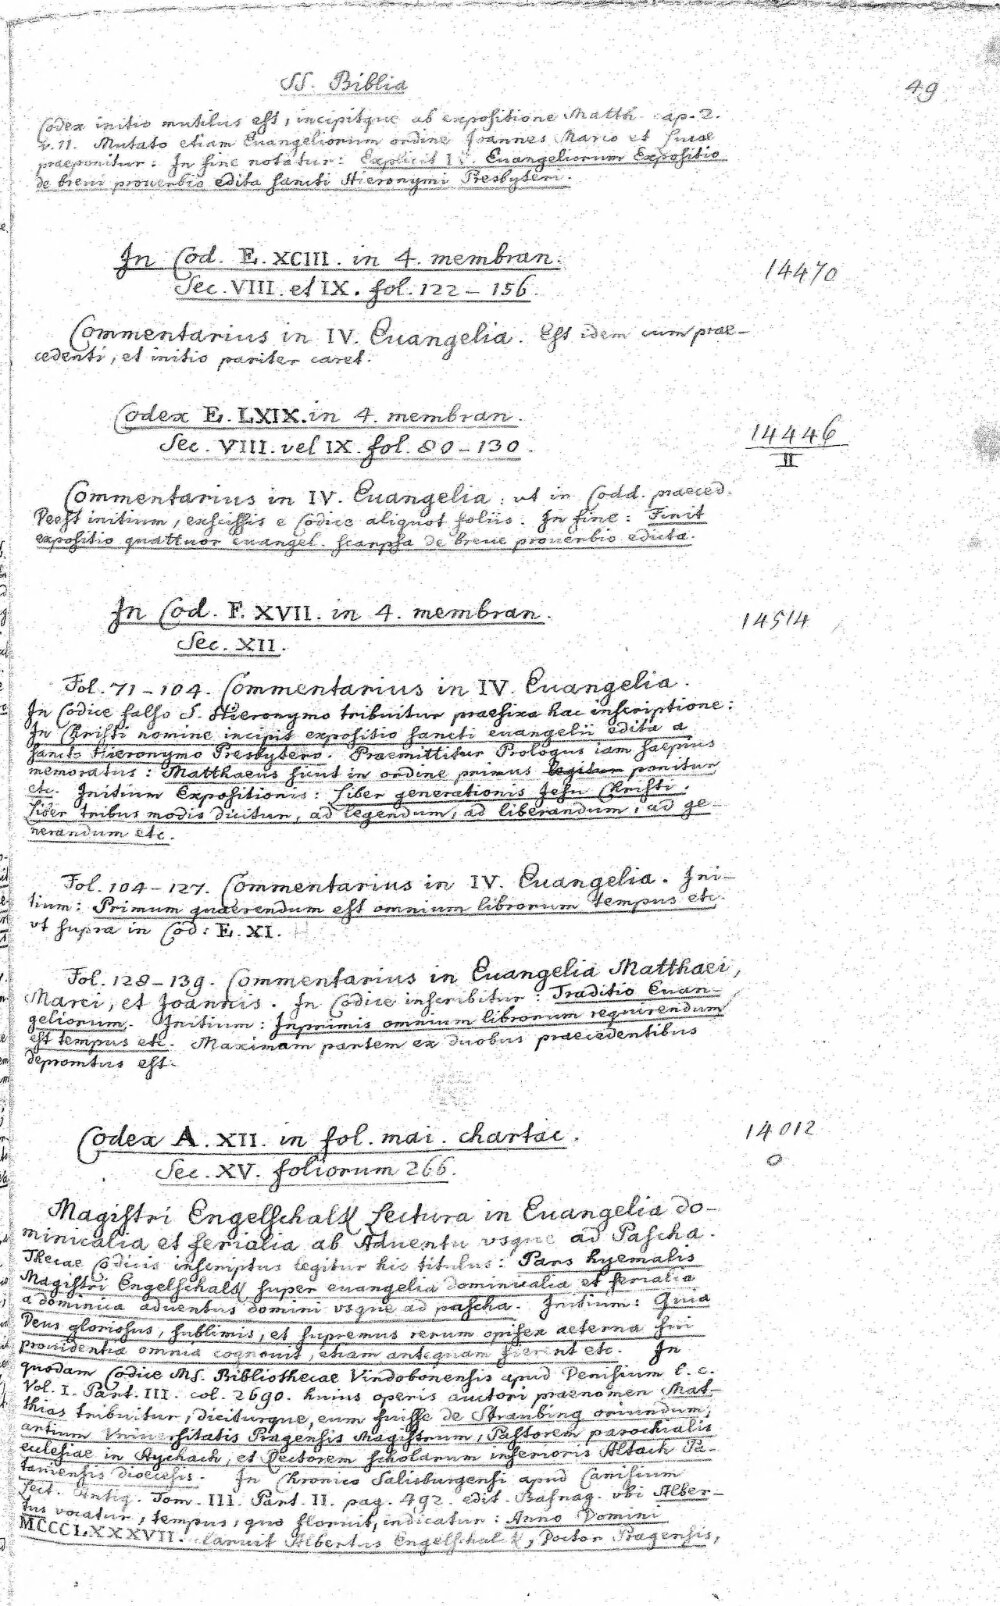 SS. Biblia
49
Codex initio mutilus est, incipitque ab expositione Matth. cap. 2.
v. 11. Mutato etiam Euangeliorum ordine Joannes Marco et Lucae
praeponitur: In fine notatur: Explicit IV. Euangeliorum Expositio
de breui prouerbio edita sancti Hieronymi Presbyteri.
In Cod. E. XCIII. in 4. membran.
14470
Sec. VIII. et IX. fol. 122 – 156.
Commentarius in IV. Euangelia. Est idem cum prae-
cedenti, et initio pariter caret.
Codex E. LXIX. in 4. membran.
14446
II
Sec. VIII. vel IX. fol. 80 – 130.
Commentarius in IV. Euangelia: ut in Codd. praeced.
Deest initium, exscissis e Codice aliquot foliis. In fine: Finit
expositio quattuor euangel. scarpsa de breue prouerbio edicta.
In Cod. F. XVII. in 4. membran.
14514
Sec. XII.
Fol. 71 – 104. Commentarius in IV. Euangelia.
In Codice falso S. Hieronymo tribuitur praefixa hac inscriptione:
In Christi nomine incipit expositio sancti euangelii edita a
sancto Hieronymo Presbytero. Praemittitur Prologus iam saepius
memoratus: Matthaeus sicut in ordine primus legitur ponitur
etc. Initium Expositionis: Liber generationis Jesu Christi:
Liber tribus modis dicitur, ad legendum, ad liberandum, ad ge-
nerandum etc.
Fol. 104 – 127. Commentarius in IV. Euangelia. Ini-
tium: Primum quaerendum est omnium librorum tempus etc.
ut supra in Cod: E. XI.
Fol. 128 – 139. Commentarius in Euangelia Matthaei,
Marci, et Joannis. In Codice inscribitur: Traditio Euan-
geliorum. Initium: Inprimis omnium librorum requirendum
est tempus etc. Maximam partem ex duobus praecedentibus
depromtus est.
Codex A. XII. in fol. mai. chartac.
14012
Sec. XV. foliorum 266.
Magistri Engelschalk Lectura in Euangelia do-
minicalia et ferialia ab Aduentu vsque ad Pascha.
Thecae Codicis inscriptus legitur hic titulus: Pars hyemalis
Magistri Engelschalk super euangelia dominicalia et ferialia
a dominica aduentus domini vsque ad pascha. Initium: Quia
Deus gloriosus, sublimis, et supremus rerum opifex aeterna sui
prouidentia omnia cognouit, etiam antequam fierent etc. In
quodam Codice MS. Bibliothecae Vindobonensis apud Denisium l. c.
Vol. I. Part. III. col. 2690. huius operis auctori praenomen Mat-
thias tribuitur, diciturque, eum fuisse de Straubing oriundum,
artium Vniuersitatis Pragensis Magistrum, Pastorem parochialis
ecclesiae in Aychach, et Rectorem scholarum inferioris Altach Pa-
tauiensis dioecesis. In Chronico Salisburgensi apud Canisium
Lect. Antiq. Tom. III. Part. II. pag. 492. edit. Basnag. vbi Alber-
tus vocatur, tempus, quo floruit, indicatur: Anno Domini
MCCCLXXXVII. claruit Albertus Engelschalk, Doctor Pragensis,